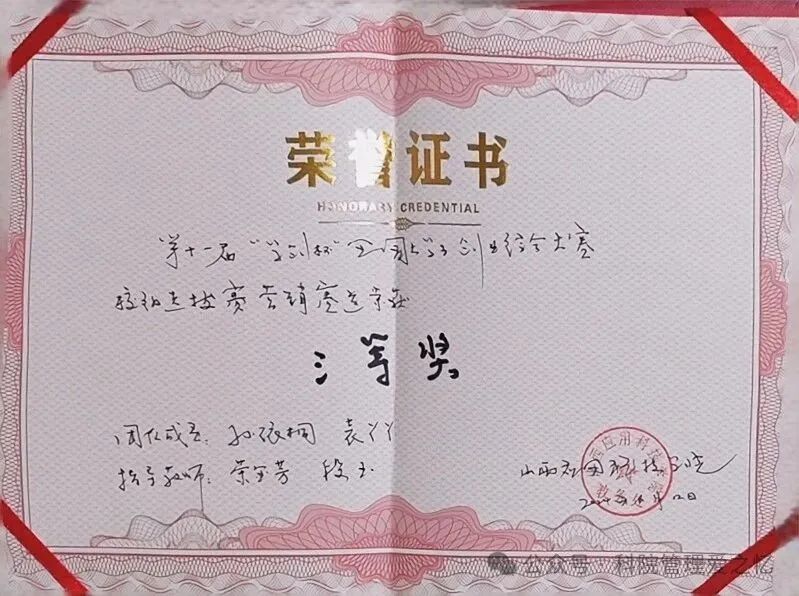 荣誉证书
HONORARY CREDENTIAL
第十一届“学创杯”全国大学生创业综合大赛
校级选拔赛营销赛道荣获
三等奖
团队成员：孙依桐 袁丫丫
指导教师：荣金芳 段玉
山西应用科技学院
公众号·科院管理爱之忆